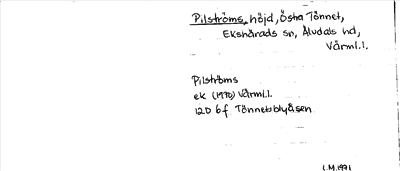 Pilströms, höjd, Östra Tönnet,
Ekshärads sn, Älvdals hd,
Värml.l.
Pilströms
ek (1970) Värml.l.
12D 6f Tönnetsblyåsen
L.M.1971